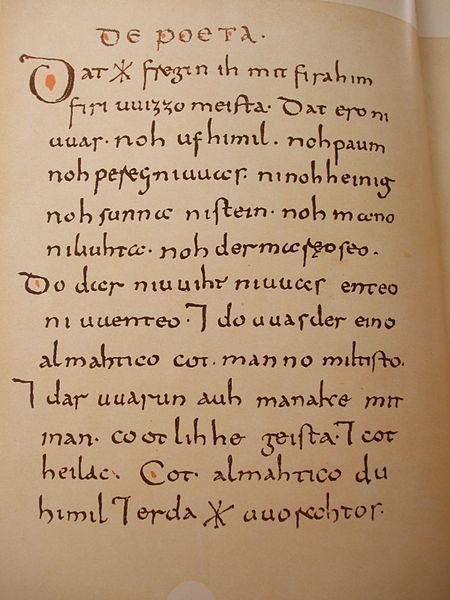 DE POETA.
Dat ᛡ fregin ih mit firahim
firi uuizzo meista. Dat ero ni
uuas. noh ufhimil. noh paum
noh pereg ni uuas. ni nohheinig
noh sunna ni stein. noh mano
ni liuhta. noh der maręo seo.
Do dar niuuiht ni uuas enteo
ni uuenteo. ⁊ do uuas der eino
almahtico cot. manno miltisto.
⁊ dar uuarun auh manake mit
inan. cootlihhe geista. ⁊ cot
heilac. Cot almahtico du
himil ⁊ erda ᛡ uuorahtos.